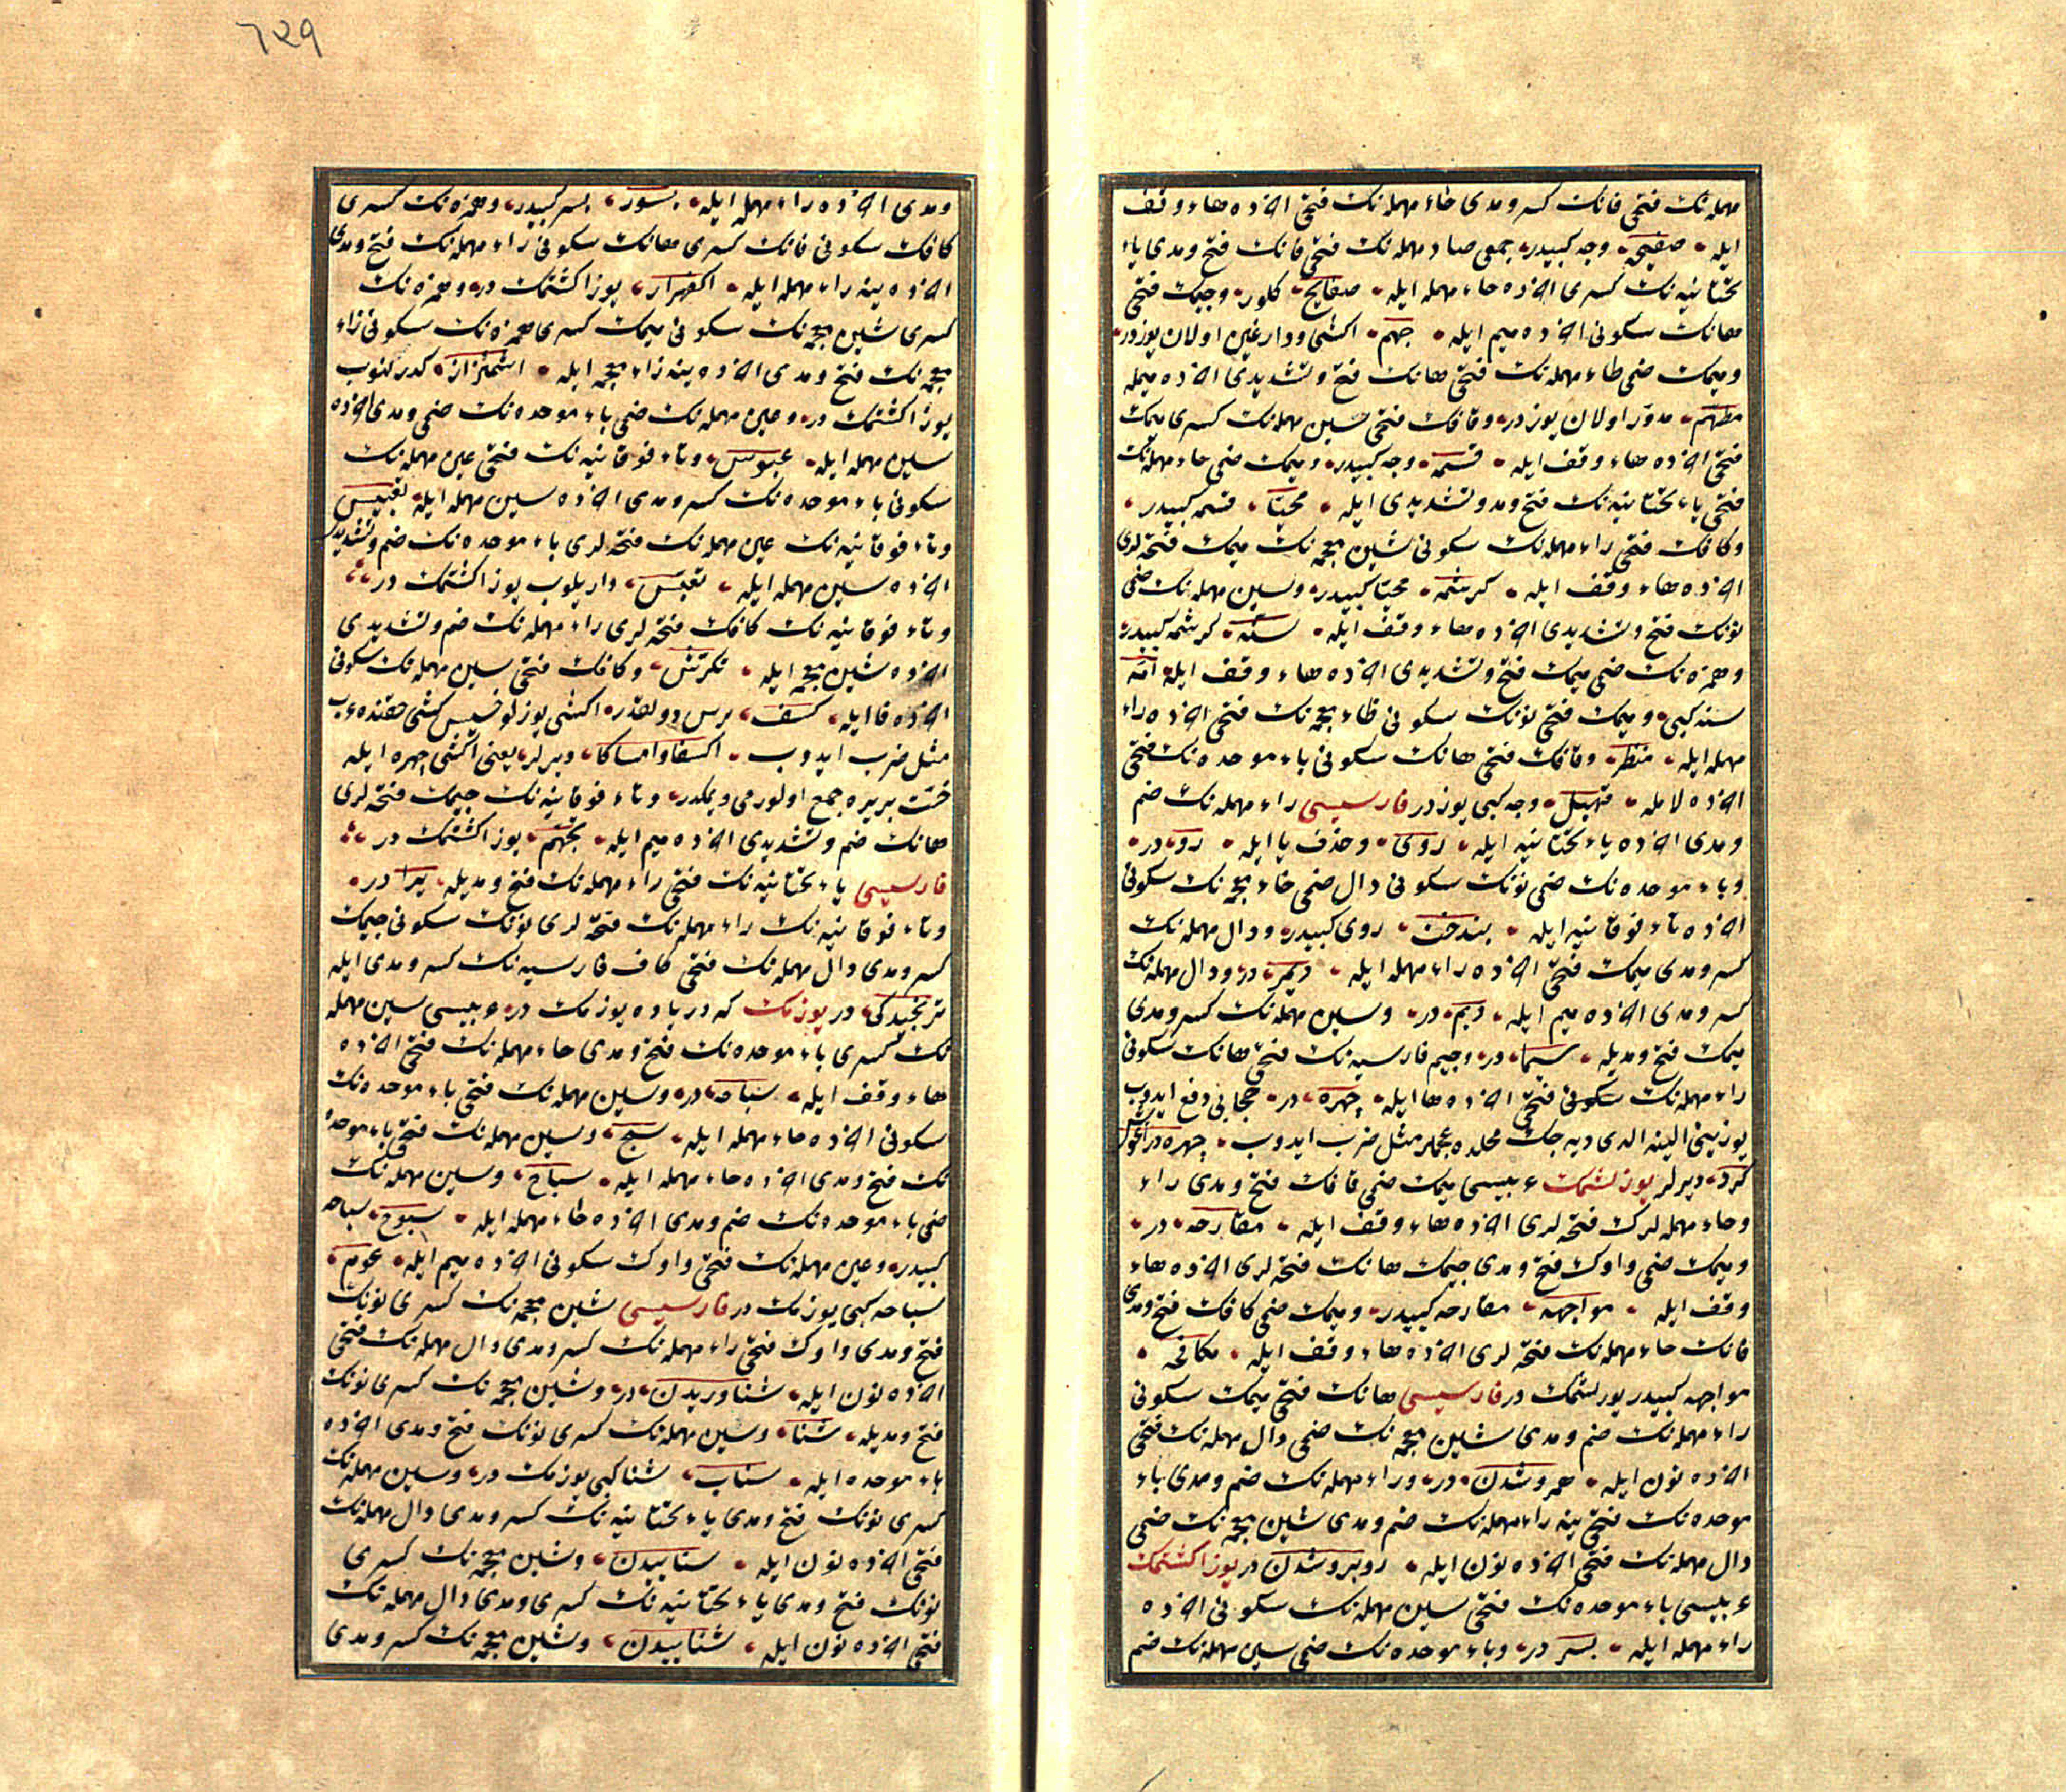 مهمله‌نك فتحی فانك كسر و مدی حاء مهمله‌نك فتحی آخرده هاء وقف
ایله صفیحه وجه كبیدر جمعی صاد مهمله‌نك فتحی فانك فتح و مدی یاء
تحتانیه‌نك كسری آخرده حاء مهمله ایله صفایح كلور وجیمك فتحی
هانك سكونی آخرده میم ایله جهم اكشی و دارغین اولان یوزدر
ومیمك ضمی طاء مهمله‌نك فتحی هانك فتح و تشدیدی آخرده میمله
مطهم مدور اولان یوزدر وقافك فتحی سین مهمله‌نك كسری میمك
فتحی آخرده هاء وقف ایله قسمه وجه كبیدر ومیمك ضمی حاء مهمله‌نك
فتحی یاء تحتانیه‌نك فتح و مد و تشدیدی ایله محیا قسمه كبیدر
وكافك فتحی راء مهمله‌نك سكونی شین معجمه‌نك میمك فتحه‌لری
آخرده هاء وقف ایله كرشمه محیا كبیدر وسین مهمله‌نك ضمی
نونك فتح و تشدیدی آخرده هاء وقف ایله سنه كرشمه كبیدر
وهمزه‌نك ضمی میمك فتح و تشدیدی آخرده هاء وقف ایله امه
سنه كبی ومیمك فتحی نونك سكونی ظاء معجمه‌نك فتحی آخرده راء
مهمله ایله منظر وقافك فتحی هانك سكونی باء موحده‌نك فتحی
آخرده لامله قهبل وجه كبی یوزدر فارسیسی راء مهمله‌نك ضم
و مدی آخرده یاء تحتانیه ایله روی وحذف یا ایله رو در
وباء موحده‌نك ضمی نونك سكونی دال ضمی خاء معجمه‌نك سكونی
آخرده تاء فوقانیه ایله بندخت روی كبیدر ودال مهمله‌نك
كسر و مدی میمك فتحی آخرده راء مهمله ایله دیمر در ودال مهمله‌نك
كسر و مدی آخرده میم ایله دیم در وسین مهمله‌نك كسر و مدی
میمك فتح و مدیله سیما در وجیم فارسیه‌نك فتحی هانك سكونی
راء مهمله‌نك فتحی آخرده ها ایله چهره در حجابی دفع ایدوب
یوزینی الینه الدی دیه‌جك محلده عجملر مثل ضرب ایدوب چهره در آغوش
كرد دیرلر یوزلشمك عربیسی میمك ضمی قافك فتح و مدی راء
وحاء مهمله‌لرك فتحه‌لری آخرده هاء وقف ایله مقارحه در
ومیمك ضمی واوك فتح و مدی جیمك هانك فتحه‌لری آخرده هاء
وقف ایله مواجهه مقارحه كبیدر ومیمك ضمی كافك فتح و مدی
فانك حاء مهمله‌نك فتحه‌لری آخرده هاء وقف ایله مكافحه
مواجهه كبیدر یوزلشمك در فارسیسی هانك فتحی میمك سكونی
راء مهمله‌نك ضم و مدی شین معجمه‌نك ضمی دال مهمله‌نك فتحی
آخرده نون ایله همروشدن در وراء مهمله‌نك ضم و مدی باء
موحده‌نك فتحی ینه راء مهمله‌نك ضم و مدی شین معجمه‌نك ضمی
دال مهمله‌نك فتحی آخرده نون ایله روبروشدن در یوز اكشتمك
عربیسی باء موحده‌نك فتحی سین مهمله‌نك سكونی آخرده
راء مهمله ایله بسر در وباء موحده‌نك ضمی سین مهمله‌نك ضم
و مدی آخرده راء مهمله ایله بسور بسر كبیدر وهمزه‌نك كسری
كافك سكونی فانك كسری هانك سكونی راء مهمله‌نك فتح و مدی
آخرده ینه راء مهمله ایله اكفهرار یوز اكشتمك در وهمزه‌نك
كسری شین معجمه‌نك سكونی میمك كسری همزه‌نك سكونی زاء
معجمه‌نك فتح و مدی آخرده ینه زاء معجمه ایله اشمئزاز كدرلنوب
یوز اكشتمك در وعین مهمله‌نك ضمی باء موحده‌نك ضمی و مدی آخرده
سین مهمله ایله عبوس وتاء فوقانیه‌نك فتحی عین مهمله‌نك
سكونی باء موحده‌نك كسر و مدی آخرده سین مهمله ایله تعبیس
وتاء فوقانیه‌نك عین مهمله‌نك فتحه‌لری باء موحده‌نك ضم و تشدیدی
آخرده سین مهمله ایله تعبس داریلوب یوز اكشتمك در
وتاء فوقانیه‌نك كافك فتحه‌لری راء مهمله‌نك ضم و تشدیدی
آخرده شین معجمه ایله تكرش وكافك فتحی سین مهمله‌نك سكونی
آخرده فا ایله كسف ترس و اكشی یوزلو خسیس كشی حقنده عرب
مثل ضرب ایدوب اكسفا وامساكا دیرلر یعنی اكشی چهره ایله
خست بر یره جمع اولورمی دیمكدر وتاء فوقانیه‌نك جیمك فتحه‌لری
هانك ضم و تشدیدی آخرده میم ایله تجهم یوز اكشتمك در
فارسیسی یاء تحتانیه‌نك فتحی راء مهمله‌نك فتح و مدیله یرا در
وتاء فوقانیه‌نك راء مهمله‌نك فتحه‌لری نونك سكونی جیمك
كسر و مدی دال مهمله‌نك فتحی كاف فارسیه‌نك كسر و مدی ایله
ترنجیدگی در یوزمك كه دریاده یوزمك در عربیسی سین مهمله
نك كسری باء موحده‌نك فتح و مدی حاء مهمله‌نك فتحی آخرده
هاء وقف ایله سباحه در وسین مهمله‌نك فتحی باء موحده‌نك
سكونی آخرده حاء مهمله ایله سبح وسین مهمله‌نك فتحی باء موحده
نك فتح و مدی آخرده حاء مهمله ایله سباح وسین مهمله‌نك
ضمی باء موحده‌نك ضم و مدی آخرده حاء مهمله ایله سبوح سباحه
كبیدر وعین مهمله‌نك فتحی واوك سكونی آخرده میم ایله عوم
سباحه كبی یوزمك در فارسیسی شین معجمه‌نك كسری نونك
فتح و مدی واوك فتحی راء مهمله‌نك كسر و مدی دال مهمله‌نك فتحی
آخرده نون ایله شناوریدن در وشین معجمه‌نك كسری نونك
فتح و مدیله شنا وسین مهمله‌نك كسری نونك فتح و مدی آخرده
باء موحده ایله سناب شنا كبی یوزمك در وسین مهمله‌نك
كسری نونك فتح و مدی یاء تحتانیه‌نك كسر و مدی دال مهمله‌نك
فتحی آخرده نون ایله سناییدن وشین معجمه‌نك كسری
نونك فتح و مدی یاء تحتانیه‌نك كسری و مدی دال مهمله‌نك
فتحی آخرده نون ایله شناییدن وشین معجمه‌نك كسر و مدی